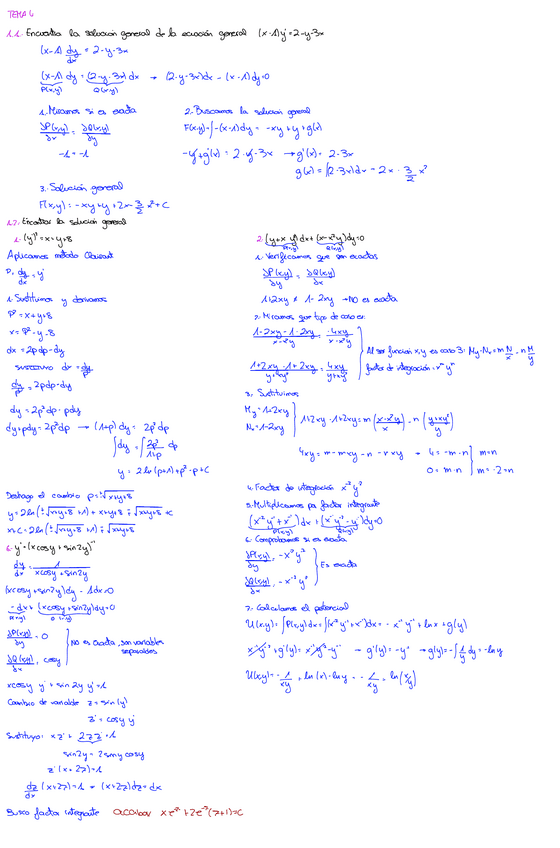 TEMA 6
1.1. Encuentra la solucion general de la ecuación general (x-1)y'=2-y-3x
(x-1) dy/dx = 2-y-3x
(x-1) dy = (2-y-3x) dx → (2-y-3x)dx - (x-1)dy=0
P(x,y) Q(x,y)
1. Miramos si es exacta
∂P(x,y)/∂x = ∂Q(x,y)/∂y
-1 = -1
2. Buscamos la solucion general
F(x,y)=∫-(x-1)dy = -xy+y+g(x)
-y+g'(x) = 2-y-3x → g'(x)= 2-3x
g(x) = ∫(2-3x)dx = 2x - 3/2 x²
3. Solución general
F(x,y) = -xy+y+2x-3/2 x²+C
1.2. Encontrar la solución general
1. (y')²=x+y+8
Aplicamos método Clairaut
P= dy/dx = y'
1. Sustituimos y derivamos
P² = x+y+8
x= P²-y-8
dx = 2pdp-dy
sustituimos dx = dy/p
dy/p = 2pdp-dy
dy = 2p²dp - pdy
dy+pdy=2p²dp → (1+p)dy = 2p²dp
∫dy = ∫2p²/1+p dp
y = 2ln(p+1)+p²-p+C
Deshago el cambio p=±√x+y+8
y=2ln(±√x+y+8 +1) + x+y+8 ∓√x+y+8 +C
x+C=2ln(±√x+y+8 +1) ∓√x+y+8
6. y'=(xcosy+sin2y)⁻¹
dy/dx = 1/xcosy+sin2y
(xcosy+sin2y)dy - 1dx=0
-dx+(xcosy+sin2y)dy=0
P(x,y) Q(x,y)
∂P(x,y)/∂y = 0
∂Q(x,y)/∂x = cosy
No es exacta, son variables separables
xcosy y' + sin2y y'=1
Cambio de variable z=sin(y)
z' = cosy y'
Sustituyo: xz'+2zz'=1
sin2y = 2siny cosy
z'(x+2z)=1
dz/dx (x+2z)=1 → (x+2z)dz=dx
Busco factor integrante acabar xe⁻ᶻ+2e⁻ᶻ(z+1)=C
2. (y+xy²)dx+(x-x²y)dy=0
P(x,y) Q(x,y)
1. Verificamos que son exactas
∂P(x,y)/∂y = ∂Q(x,y)/∂x
1+2xy ≠ 1-2xy → NO es exacta
2. Miramos que tipo de caso es:
1+2xy-1+2xy/x-x²y = 4xy/x-x²y
1+2xy-1+2xy/y+xy² = 4xy/y+xy²
Al ser función x,y es caso 3: My-Nx=m N/x - n M/y
factor de integración: xᵐyⁿ
3. Sustituimos
My=1+2xy
Nx=1-2xy
1+2xy-1+2xy=m (x-x²y/x) - n (y+xy²/y)
4xy = m-mxy-n-nxy → 4=-m-n
0=m-n
m=n
m=-2=n
4. Factor de integración x⁻²y⁻²
5. Multiplicamos por factor integrante
(x⁻²y⁻¹+x⁻¹)dx+(x⁻¹y⁻²-y⁻¹)dy=0
P(x,y) Q(x,y)
6. Comprobamos si es exacta
∂P(x,y)/∂y = -x⁻²y⁻²
∂Q(x,y)/∂x = -x⁻²y⁻²
Es exacta
7. Calculamos el potencial
U(x,y)=∫P(x,y)dx=∫(x⁻²y⁻¹+x⁻¹)dx = -x⁻¹y⁻¹+lnx+g(y)
x⁻¹y⁻²+g'(y)= x⁻¹y⁻²-y⁻¹ → g'(y)=-y⁻¹ → g(y)=-∫1/y dy=-lny
U(x,y)=-1/xy + ln(x)-lny = -1/xy + ln(x/y)